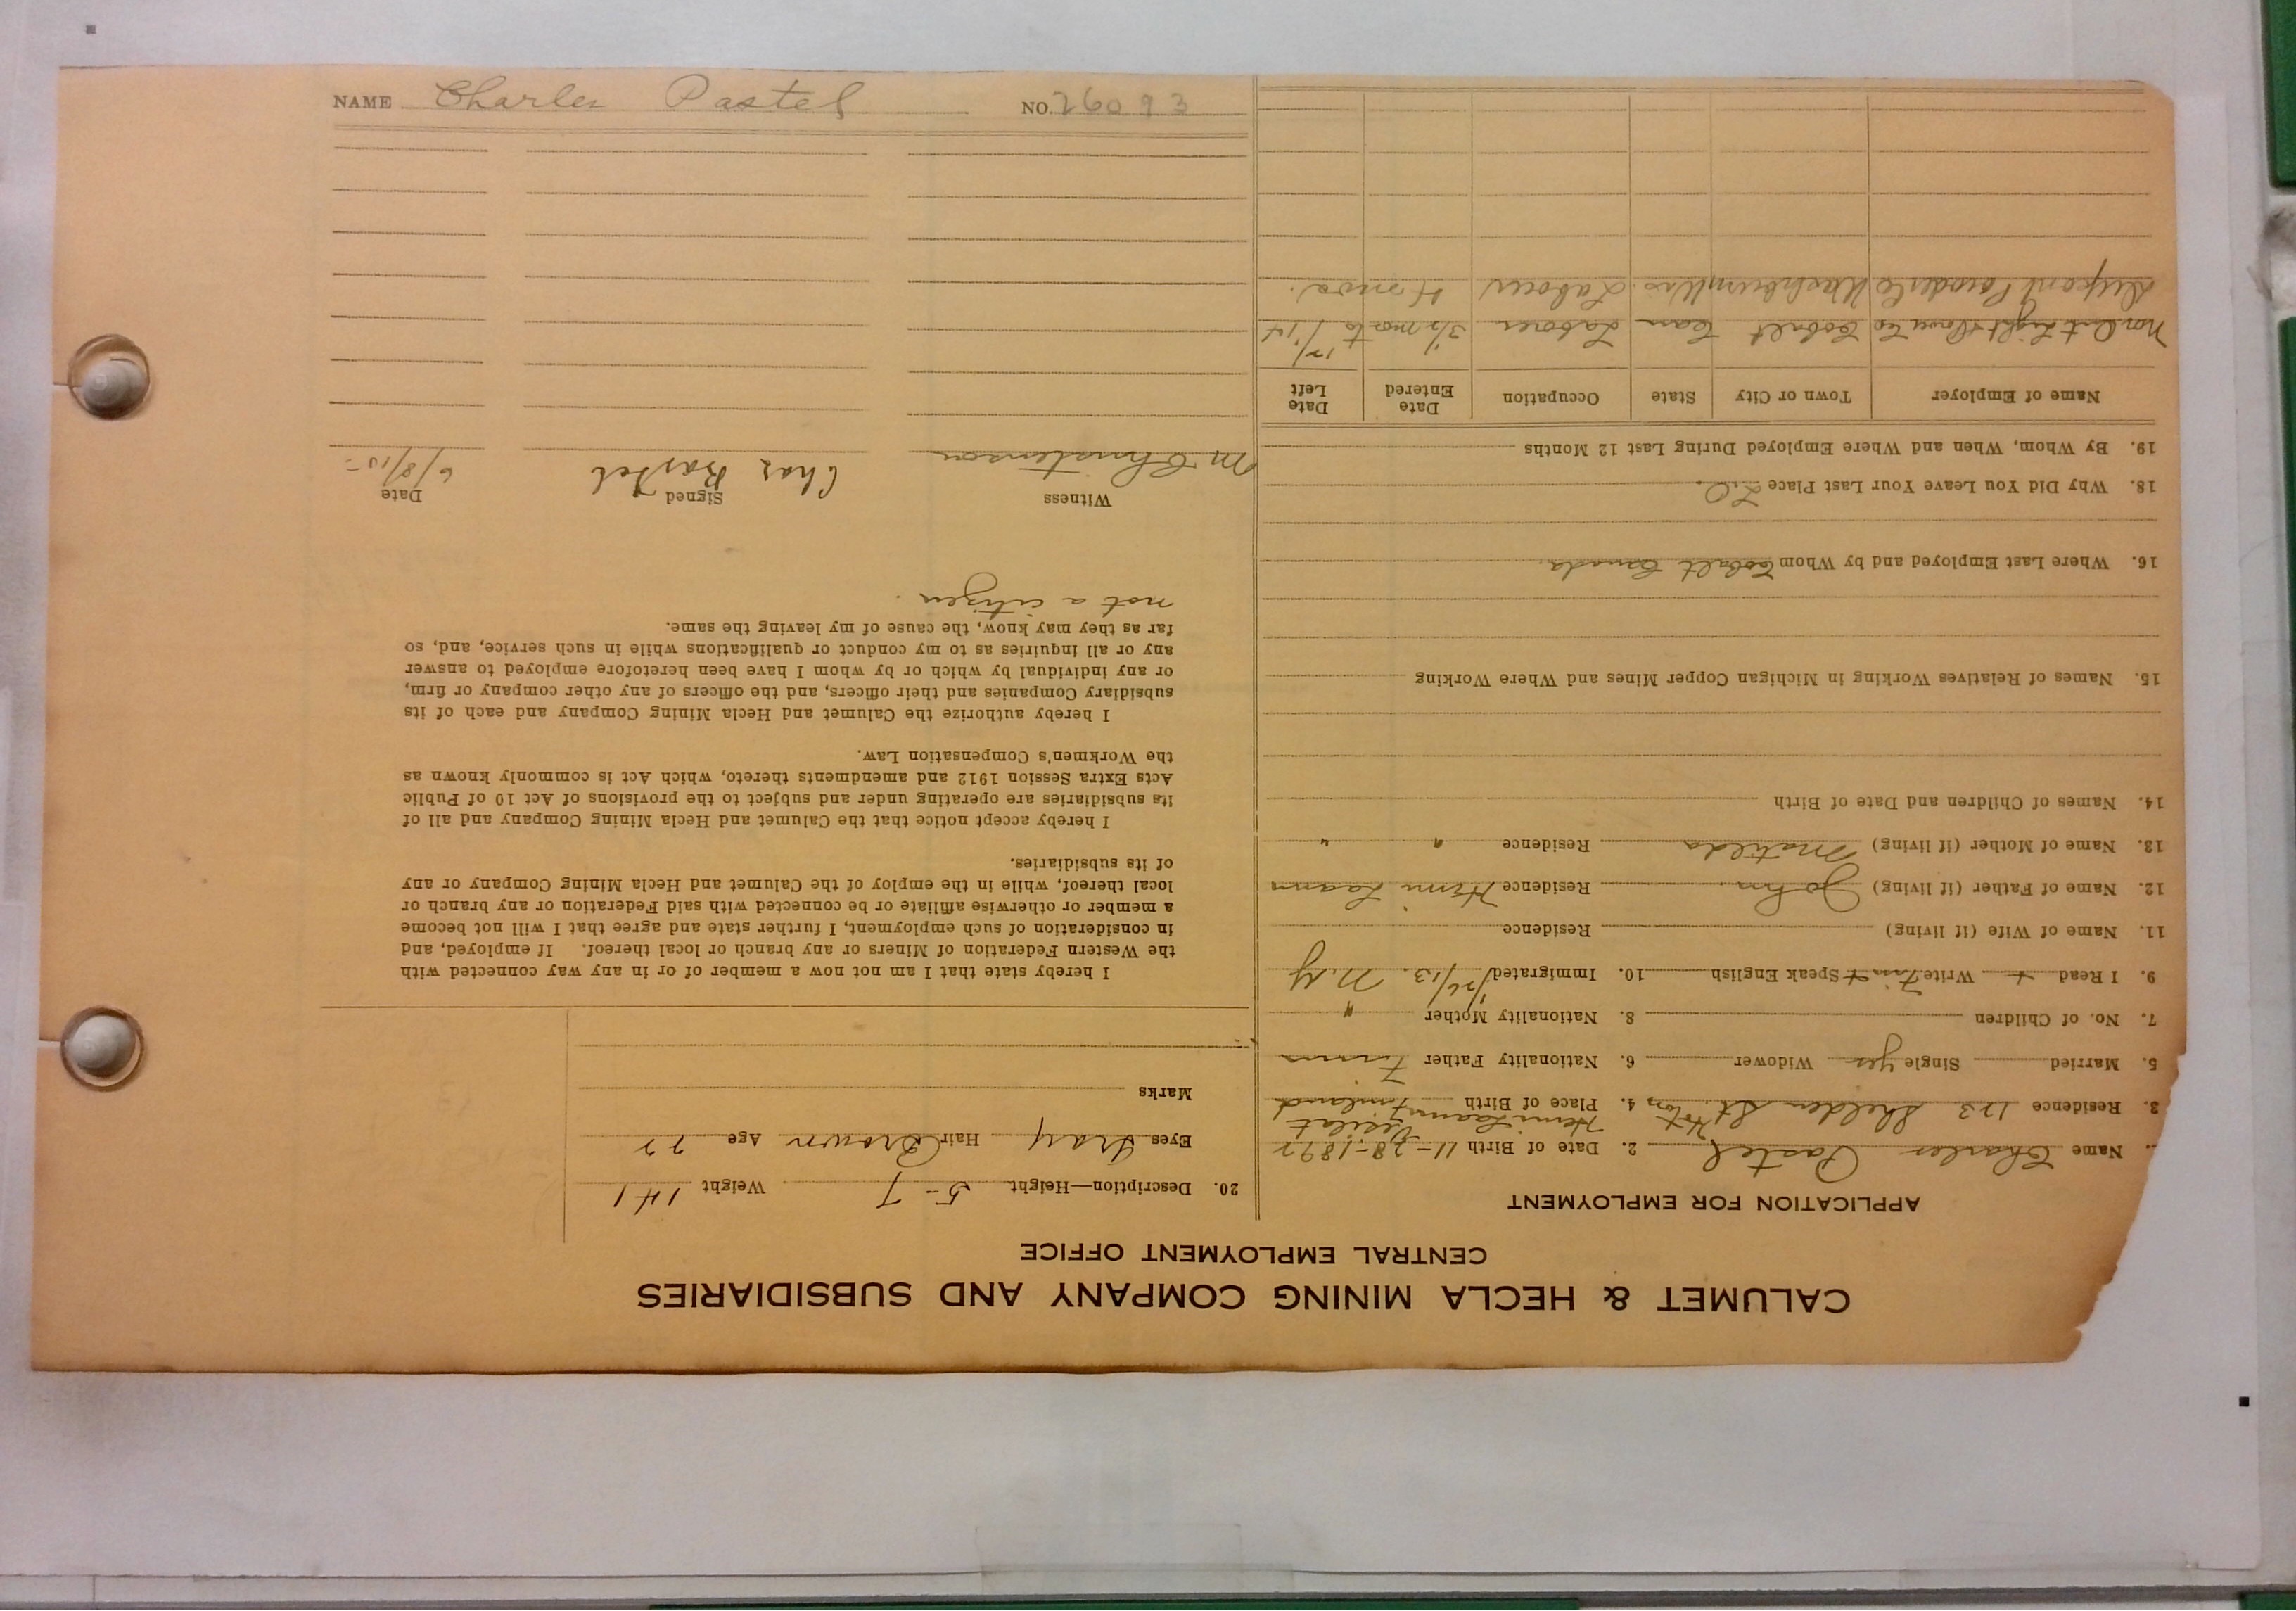 NAME Charles Pastel NO. 26093
CALUMET & HECLA MINING COMPANY AND SUBSIDIARIES
CENTRAL EMPLOYMENT OFFICE
APPLICATION FOR EMPLOYMENT
Name Charles Pastel 2. Date of Birth 11-28-1892
3. Residence 123 Shelden St. 4. Place of Birth Finland
5. Married Single yes Widower 6. Nationality Father Finn
7. No. of Children 8. Nationality Mother "
9. I Read + Write Finn + Speak English 10. Immigrated 1/26/13. N.Y
11. Name of Wife (if living) Residence
12. Name of Father (if living) John Residence
13. Name of Mother (if living) Matilda Residence " "
14. Names of Children and Date of Birth
15. Names of Relatives Working in Michigan Copper Mines and Where Working
16. Where Last Employed and by Whom Cobalt Canada.
18. Why Did You Leave Your Last Place
19. By Whom, When and Where Employed During Last 12 Months
Name of Employer Town or City State Occupation Date Entered Date Left
Light & Power Co Cobalt Can Laborer 3 1/2 mos to
Dupont Powder Co Washburn Wis. Laborer 4 mos.
20. Description—Height 5-7 Weight 141
Eyes Gray Hair Brown Age 22
Marks
I hereby state that I am not now a member of or in any way connected with
the Western Federation of Miners or any branch or local thereof. If employed, and
in consideration of such employment, I further state and agree that I will not become
a member or otherwise affiliate or be connected with said Federation or any branch or
local thereof, while in the employ of the Calumet and Hecla Mining Company or any
of its subsidiaries.
I hereby accept notice that the Calumet and Hecla Mining Company and all of
its subsidiaries are operating under and subject to the provisions of Act 10 of Public
Acts Extra Session 1912 and amendments thereto, which Act is commonly known as
the Workmen's Compensation Law.
I hereby authorize the Calumet and Hecla Mining Company and each of its
subsidiary Companies and their officers, and the officers of any other company or firm,
or any individual by which or by whom I have been heretofore employed to answer
any or all inquiries as to my conduct or qualifications while in such service, and, so
far as they may know, the cause of my leaving the same.
not a citizen.
Witness Signed Date
M Christenson Chas Pastel 6/8/15